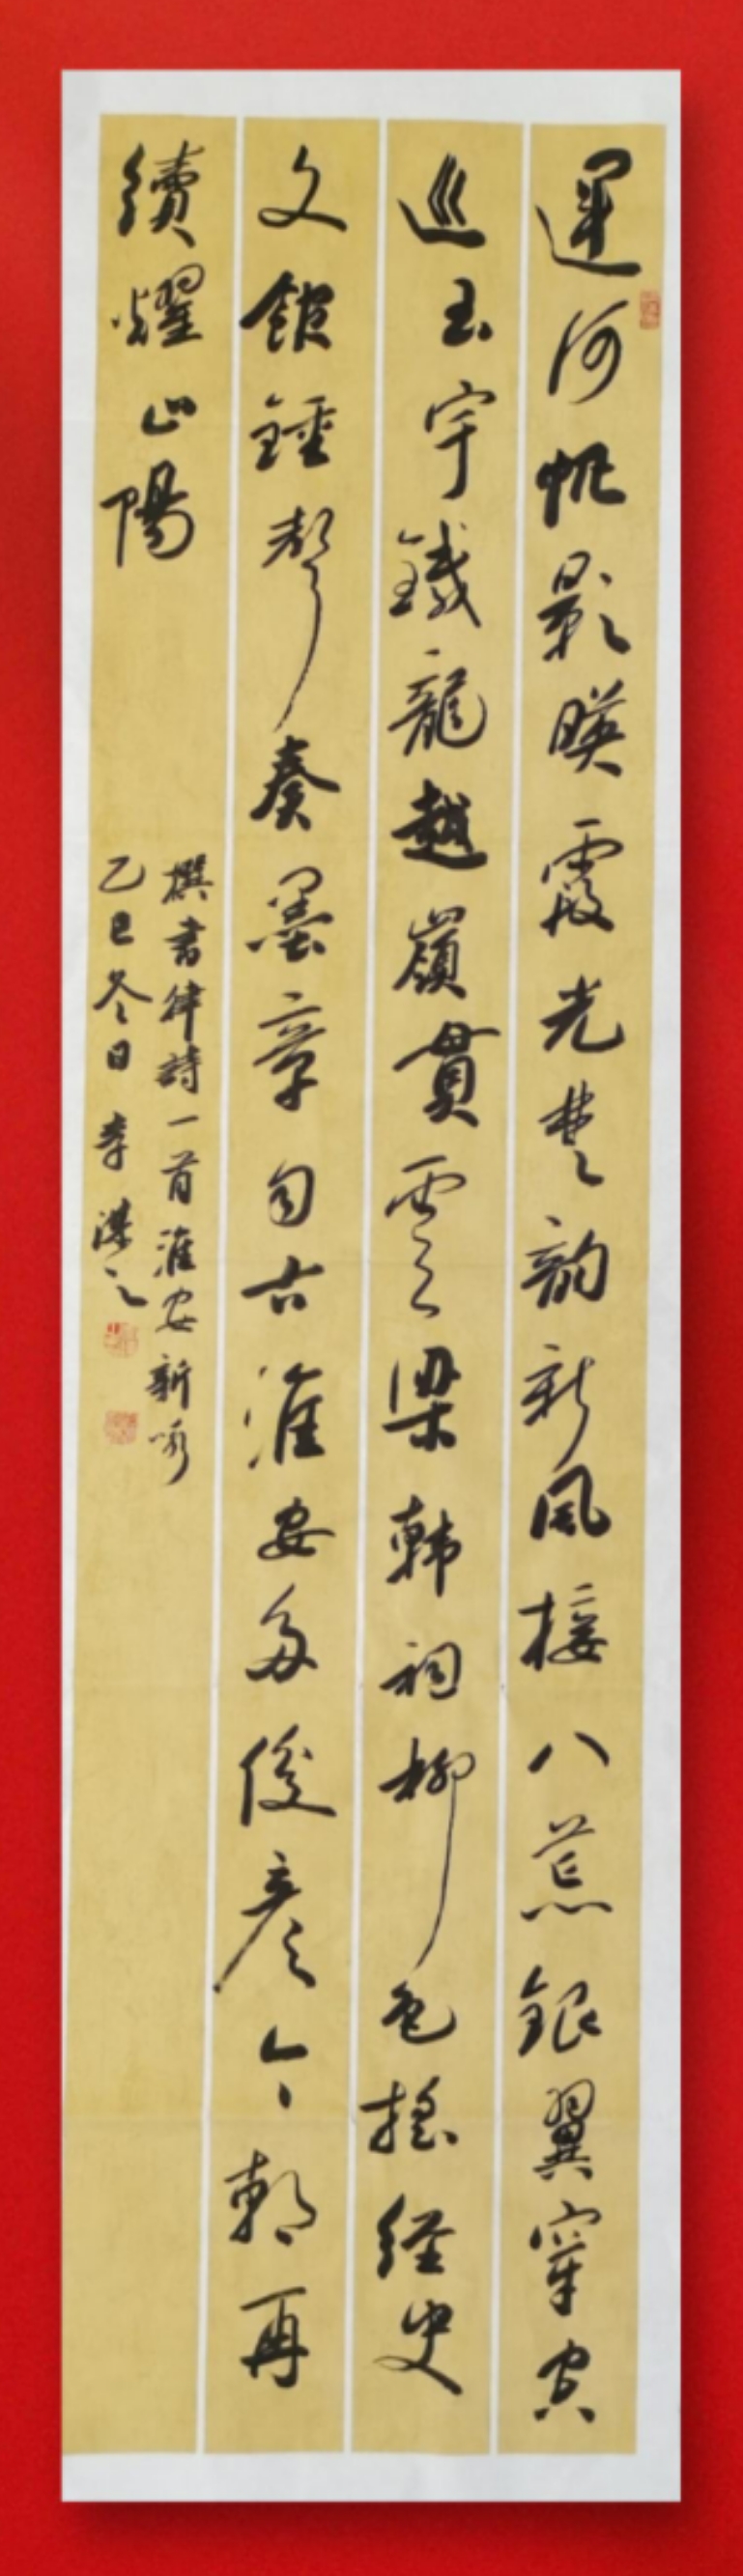 運河帆影映霞光楚韵新風接八荒銀翼穿空
巡玉宇鐵龍越嶺貫雲梁韩祠柳色摇經史
文館鍾聲奏墨章自古淮安多俊彦今朝再
續耀山陽
撰書律詩一首淮安新咏
乙巳冬日李洪之